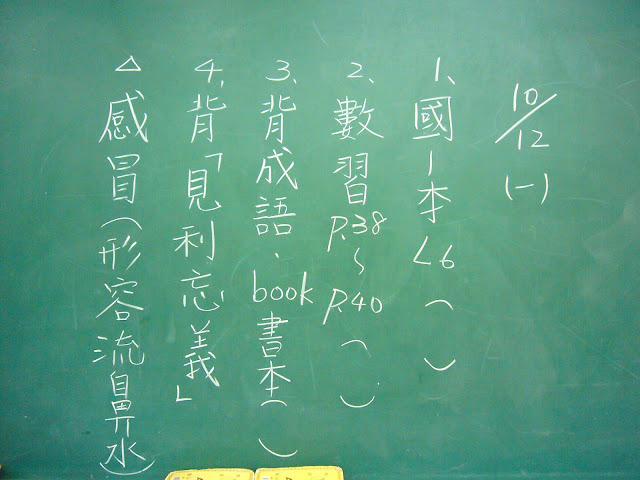 10/12(一)
1、國-本 L6( )
2、數習 P.38~P.40( )
3、背成語.book書本( )
4、背「見利忘義」
△感冒(形容流鼻水)